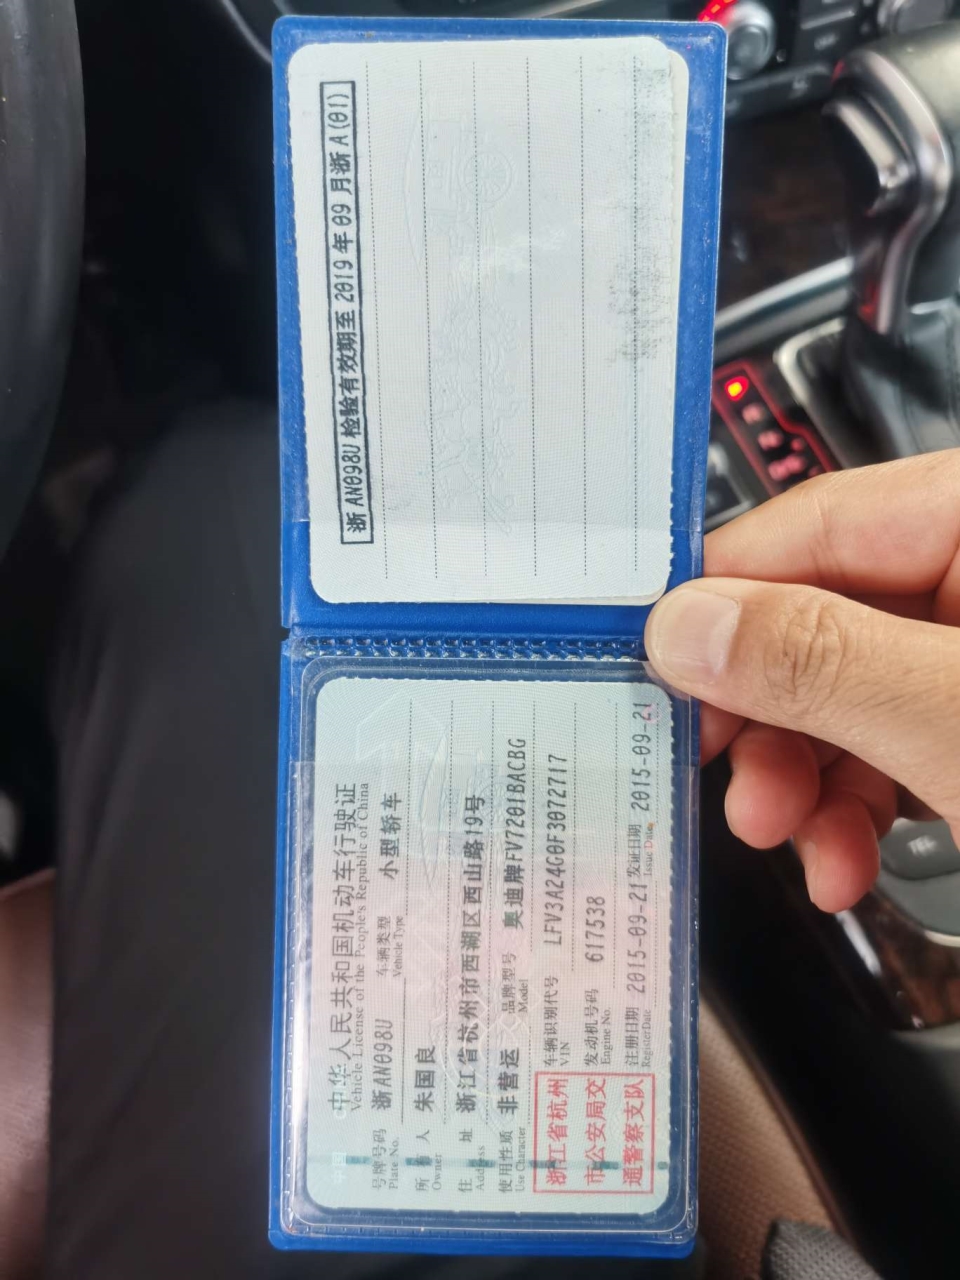 浙AN098U检验有效期至2019年09月浙A(01)
中华人民共和国机动车行驶证
Vehicle License of the People's Republic of China
号牌号码 浙AN098U 车辆类型 小型轿车
Plate No. Vehicle Type
所有人 朱国良
Owner
住址 浙江省杭州市西湖区西山路19号
Address
使用性质 非营运 品牌型号 奥迪牌FV7201BACBG
Use Character Model
浙江省杭州
市公安局交
通警察支队
车辆识别代号 LFV3A24G0F3072717
VIN
发动机号码 617538
Engine No.
注册日期 2015-09-21 发证日期 2015-09-21
Register Date Issue Date